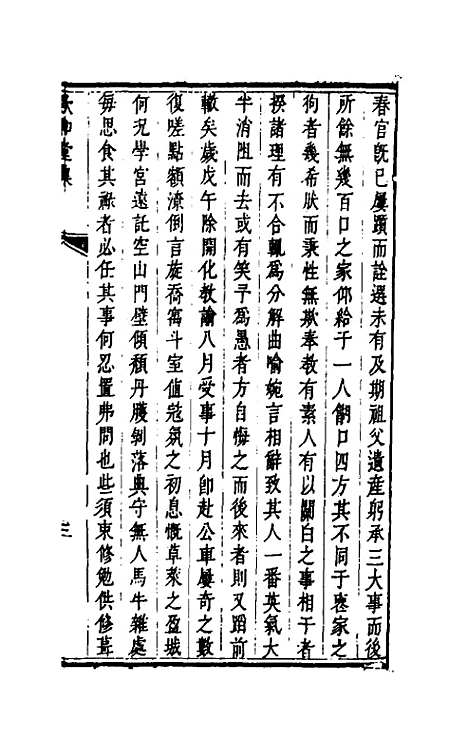 春官旣已屢躓而詮選未有及期祖父遺產躬承三大事而後
所餘無幾百口之家仰給于一人餬口四方其不同于寠家之
徇者幾希肰而秉性無欺奉教有素人有以關白之事相干者
揆諸理有不合輒爲分解曲喻婉言相辭致其人一番英氣大
半消阻而去或有笑予爲愚者方自悔之而後來者則又蹈前
轍矣歲戊午除開化教諭八月受事十月卽赴公車屢奇之數
復嗟點額潦倒言旋喬寓斗室値寇氛之初息慨草萊之盈城
何况學宮遠託空山門壁傾頹丹雘剝落典守無人馬牛雜處
每思食其祿者必任其事何忍置弗問也些須束修勉供修葺
堂集
三